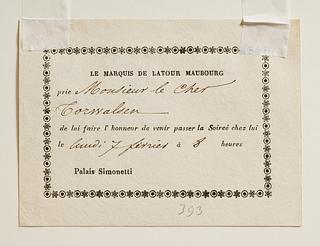 LE MARQUIS DE LATOUR MAUBOURG
prie Monsieur le Cher
Torwalsen
de lui faire l'honneur de venir passer la Soireé chez lui
le lundi 7 février à 8 heures
Palais Simonetti
393